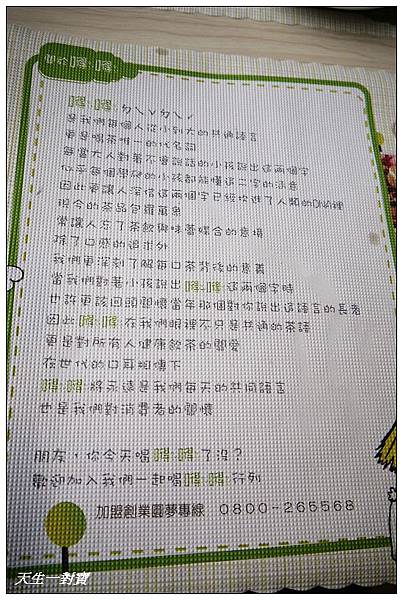 關於嘚嘚
嘚嘚:ㄉㄟˇㄉㄟˊ
是我們每個人從小到大的共通語言
更是喝茶唯一的代名詞
每當大人對著不會說話的小孩說出這兩個字
似乎每個學硬的小孩都能懂這二字的涵意
因此更讓人深信這兩個字已經收進了人類的DNA裡
現今的茶品包羅萬象
常讓人忘了茶飲與味蕾媒合的意境
除了口感的追求外
我們更深刻了解每口茶背後的意義
當我們對著小孩說出嘚嘚這兩個字時
也許更該回頭關懷當年那個對你說出這語言的長者
因此嘚嘚在我們眼裡不只是共通的茶語
更是對所有人健康飲茶的關愛
在世代的口耳相傳下
嘚嘚將永遠是我們每天的共同語言
也是我們對消費者的關懷
朋友,你今天喝嘚嘚了沒?
歡迎加入我們一起喝嘚嘚行列
加盟創業圓夢專線 0800-265568
天生一對寶